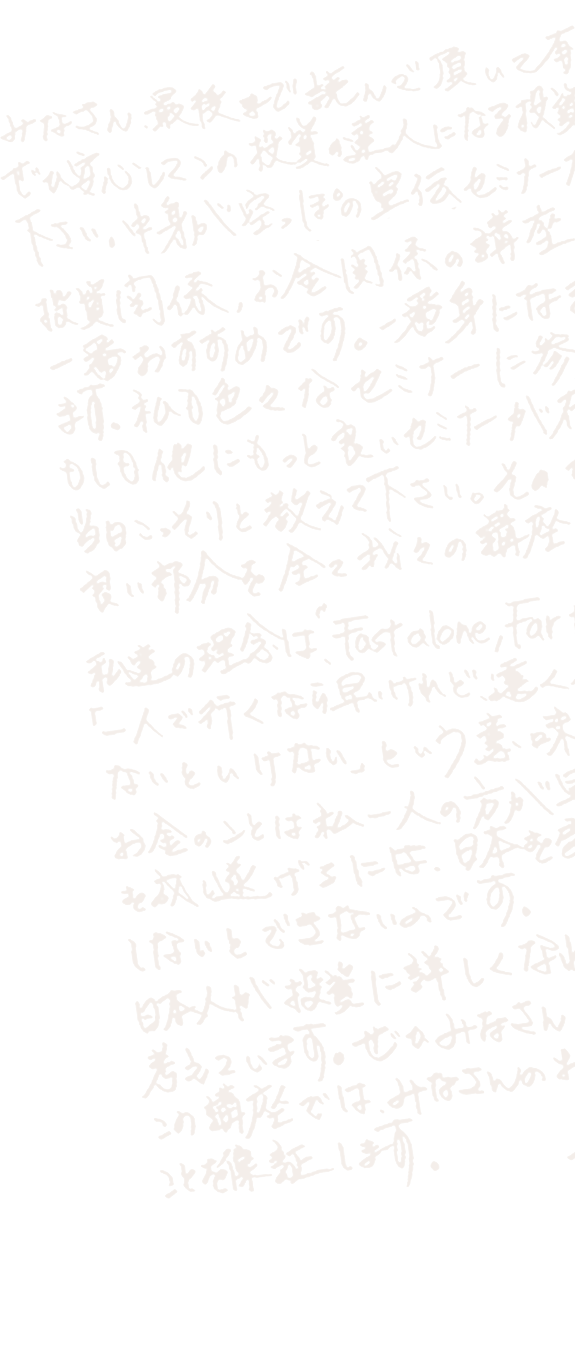 みなさん、最後まで読んで頂いて有
ぜひ安心してこの投資の達人になる投資
下さい。中身が空っぽの宣伝セミナー
投資関係、お金関係の講座
一番おすすめです。一番身になる
ます。私も色々なセミナーに参
もしも他にもっと良いセミナーが
当日こっそりと教えて下さい。その
良い部分を全て我々の講座
私達の理念は、"Fast alone, Far t
「一人で行くなら早いけれど、遠く
ないといけない」という意味
お金のことは私一人の方が
を成し遂げるには、日本を
しないとできないのです。
日本人が投資に詳しくなれ
考えています。ぜひみなさん
この講座では、みなさんのお
ことを保証します。